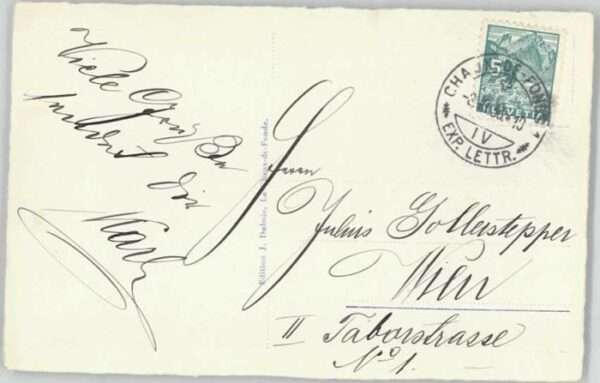 Viele Grüße
sendet dir
Karl
Edition J. Dubois, La Chaux-de-Fonds.
Herrn
Julius Gollerstepper
Wien
II Taborstrasse
No 1.
5
CHAUX-DE-FONDS
IV
EXP. LETTR.